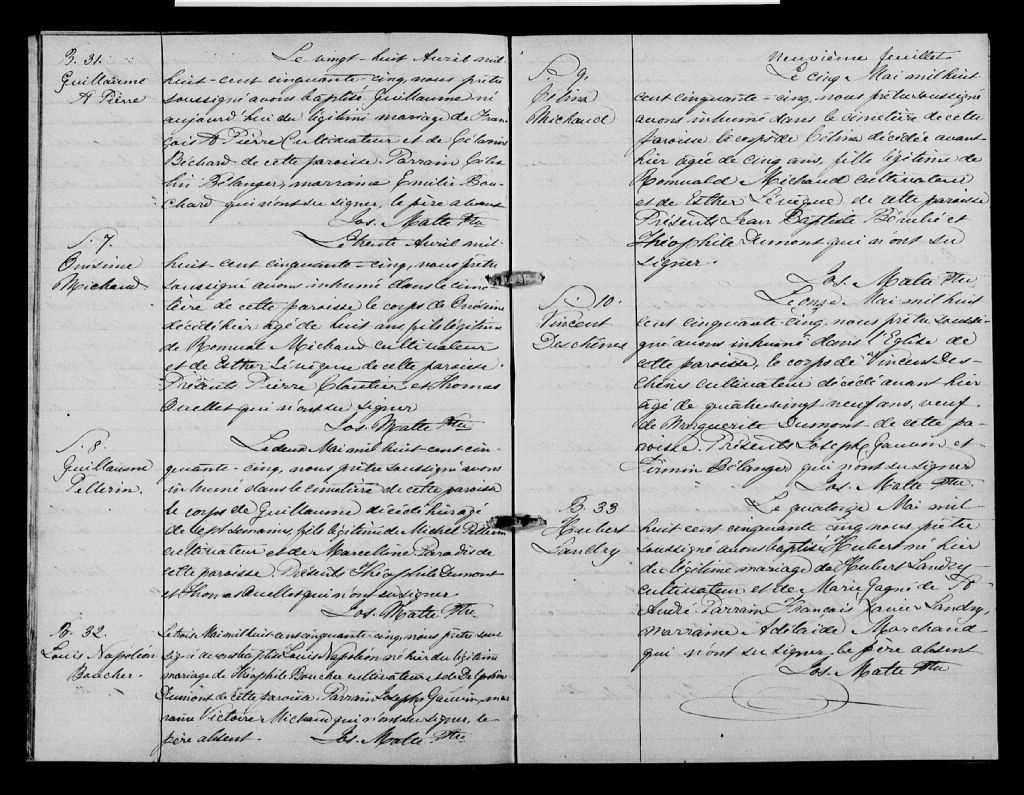 B. 31.
Guillaume
A Pierre
Le vingt-huit Avril mil
huit-cent cinquante-cinq, nous prêtre
soussigné avons baptisé Guillaume né
aujourd'hui du légitime mariage de Fran-
çois A Pierre Cultivateur et de
Béchard de cette paroisse. Parrain
Bélanger, marraine Emilie Bou-
chard qui n'ont su signer, le père absent
Jos. Matte Ptre
S. 7.
Onésime
Michaud
Le trente Avril mil
huit-cent cinquante-cinq, nous prêtre
soussigné avons inhumé dans le cime-
tière de cette paroisse le corps de Onésime
décédé hier agé de huit ans, fils légitime
de Romuald Michaud cultivateur
et de Esther Lévêque de cette paroisse.
Présents Pierre Cloutier et Thomas
Ouellet qui n'ont su signer
Jos. Matte Ptre
S. 8.
Guillaume
Pellerin.
Le deux Mai mil huit-cent cin-
quante-cinq, nous prêtre soussigné avons
inhumé dans le cimetière de cette paroisse
le corps de Guillaume décédé hier agé
de sept semaines, fils légitime de Michel Pellerin
cultivateur et de Marcelline Paradis de
cette paroisse. Présents Théophile Dumont
et Thomas Ouellet qui n'ont su signer
Jos. Matte Ptre
B. 32.
Louis Napoléon
Boucher.
Le trois Mai mil huit cent cinquante-cinq, nous prêtre sous-
signé avons baptisé Louis Napoléon né hier du légitime
mariage de Théophile Boucher cultivateur et de Delphine
Dumont de cette paroisse. Parrain Joseph Gauvin, mar-
raine Victoire Michaud qui n'ont su signer, le
père absent. Jos. Matte Ptre
Neuvième feuillet
S. 9.
Célina
Michaud
Le cinq Mai mil huit
cent cinquante-cinq, nous prêtre soussigné
avons inhumé dans le cimetière de cette
paroisse le corps de Célina décédée avant
hier agée de cinq ans, fille légitime de
Romuald Michaud cultivateur
et de Esther Lévêque de cette paroisse
Présents Jean Baptiste Bérubé et
Théophile Dumont qui n'ont su
signer.
Jos. Matte Ptre
S. 10.
Vincent
Deschênes
Le onze Mai mil huit
cent cinquante-cinq, nous prêtre soussi-
gné avons inhumé dans l'Eglise de
cette paroisse, le corps de Vincent Des-
chênes cultivateur décédé avant hier
agé de quatre-vingt neuf ans, veuf
de Marguerite Dumont de cette pa-
roisse. Présents Joseph Gauvin et
Firmin Bélanger qui n'ont su signer
Jos. Matte Ptre
B. 33
Hubert
Landry
Le quatorze Mai mil
huit cent cinquante cinq nous prêtre
soussigné avons baptisé Hubert né hier
du légitime mariage de Hubert Landry
cultivateur et de Marie Gagné de St
André. Parrain François Xavier Landry,
marraine Adélaïde Marchand
qui n'ont su signer. le père absent
Jos. Matte Ptre